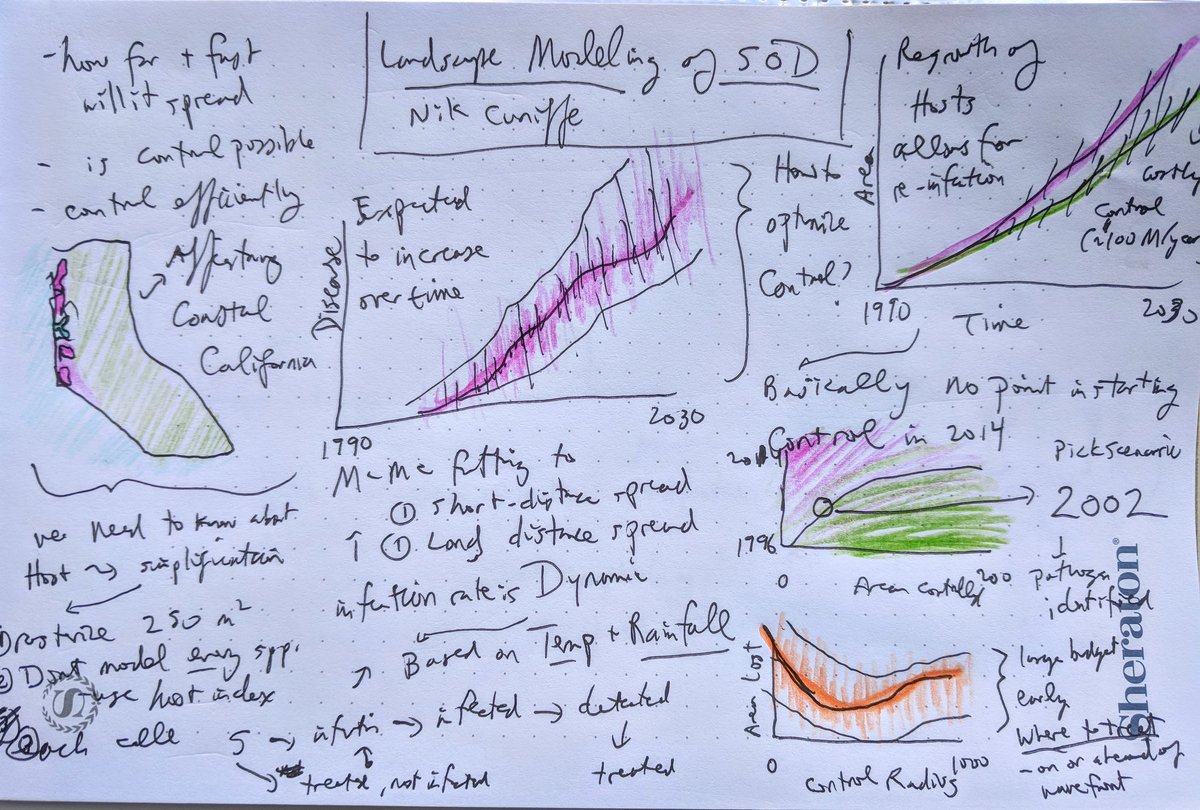 Landscape Modeling of SOD
Nik Cuniffe
- how far + fast
will it spread
- is control possible
- control efficiently
Affecting
Coastal
California
we need to know about
Host → simplification
rasturize 250 m²
② Dont model every spp.
use host index
Expected
to increase
over time
Disease
1990
2030
How to
optimize
Control?
McMc fitting to
① short-distance spread
① Long distance spread
infection rate is Dynamic
Based on Temp + Rainfall
S → → infected → detected
treated, not infected
treated
Regrowth of
Hosts
allows for
Area
costly
control
(~100 M/year
1990
Time
2030
Basically no point in starting
Control in 2014
Pick scenario
2002
1996
0
200
pathogen
identified
Area Lost
0
1000
Control Radius
large budget
early
where to treat
- on or ahead of
wavefront
Sheraton®
S